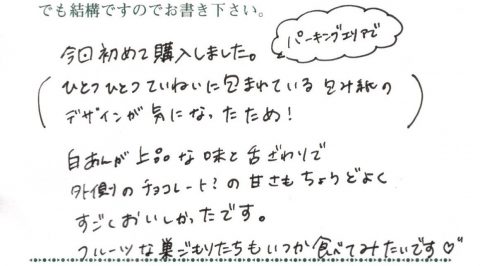 でも結構ですのでお書き下さい。
パーキングエリアで
今回初めて購入しました。
(ひとつひとつていねいに包まれている包み紙の
デザインが気になったため!)
白あんが上品な味と舌ざわりで
外側のチョコレート?の甘さもちょうどよく
すごくおいしかったです。
フルーツな巣ごもりたちもいつか食べてみたいです♡"